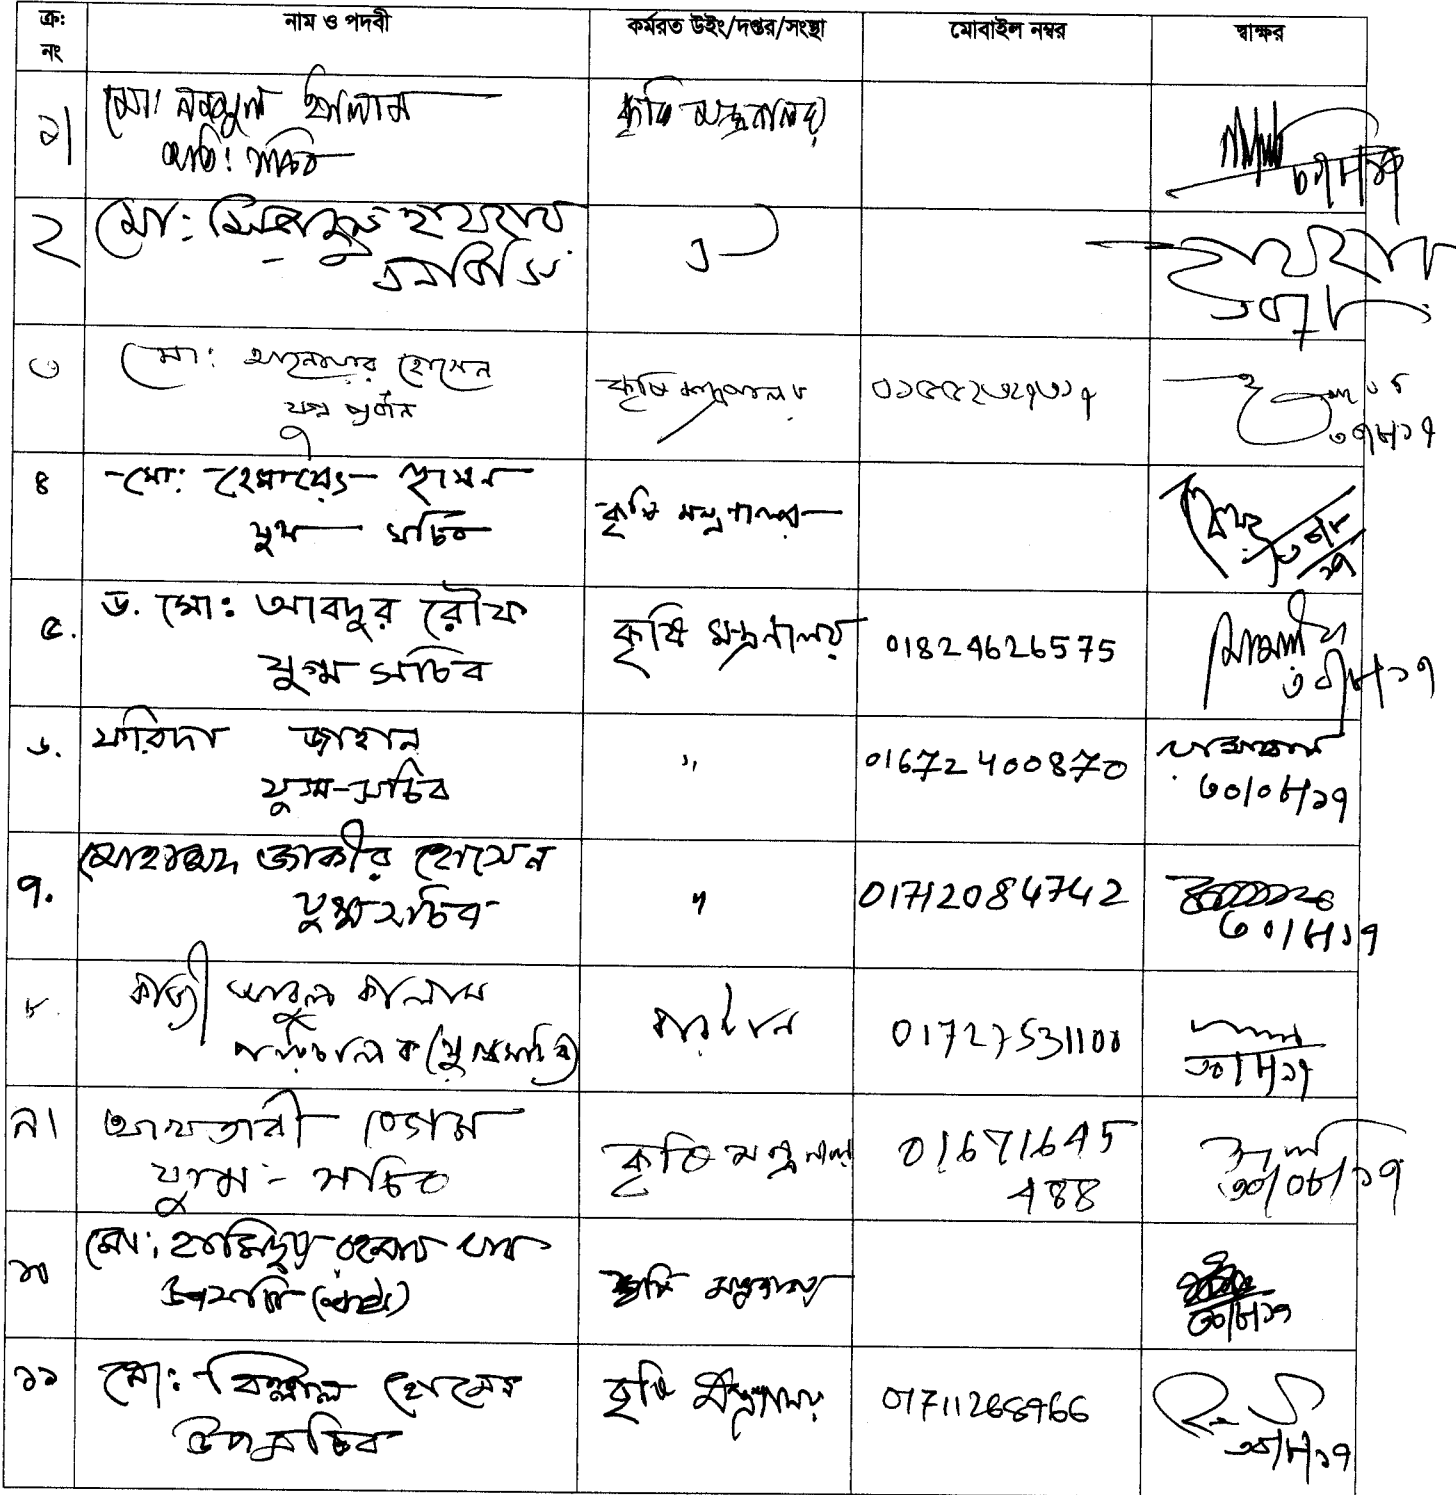 ক্র: নং
নাম ও পদবী
কর্মরত উইং/দপ্তর/সংস্থা
মোবাইল নম্বর
স্বাক্ষর
১।
মো: ইসলাম
অতি: সচিব
কৃষি মন্ত্রণালয়
২
মো: সিরাজুল হায়দার
৩
মো: হোসেন
যুগ্ম প্রধান
কৃষি মন্ত্রণালয়
০১৫৫২৩২৭৩১৭
৩০/৮/১৭
৪
মো:
যুগ্ম সচিব
কৃষি মন্ত্রণালয়
৩০/৮/১৭
৫.
ড. মো: আবদুর রৌফ
যুগ্ম সচিব
কৃষি মন্ত্রনালয়
01824626575
৩০/৮/১৭
৬.
ফরিদা জাহান
যুগ্ম-সচিব
"
01672400870
৩০/০৮/১৭
৭.
মোহাম্মদ জাকীর হোসেন
যুগ্মসচিব
"
01712084742
৩০/৮/১৭
৮.
কাজী আবুল কালাম
পরিচালক (যুগ্মসচিব)
বারটান
01727531100
৩০/৮/১৭
৯।
আখতারী বেগম
যুগ্ম-সচিব
কৃষি মন্ত্রনালয়
01671645
488
৩০/০৮/১৭
১০
মো: হামিদুর রহমান খান
কৃষি মন্ত্রণালয়
৩০/৮/১৭
১১
মো: বিল্লাল হোসেন
উপসচিব
কৃষি মন্ত্রণালয়
01711268966
৩০/৮/১৭